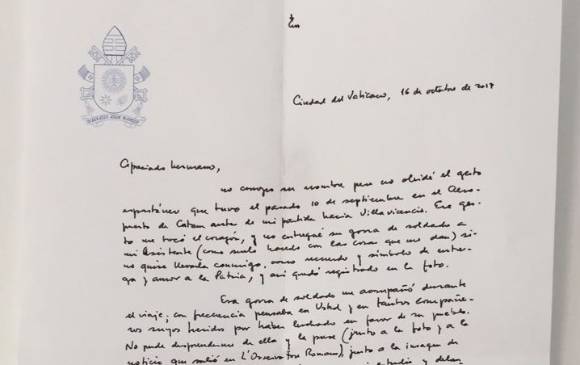 Ciudad del Vaticano, 16 de octubre de 2017
Apreciado hermano,
no conozco su nombre pero no olvidé el gesto
espontáneo que tuvo el pasado 10 de septiembre en el Aero-
puerto de Catam antes de mi partida hacia Villavicencio. Ese ges-
to me tocó el corazón, y no entregué su gorra de soldado a
mi Asistente (como suelo hacerlo con las cosas que me dan) si-
no quise llevarla conmigo, como recuerdo y símbolo de entre-
ga y amor a la Patria, y así quedó registrado en la foto.
Esa gorra de soldado me acompañó durante
el viaje; con frecuencia pensaba en Usted y en tantos compañe-
ros suyos heridos por haber luchado en favor de su pueblo.
No pude desprenderme de ella y la puse (junto a la foto y a la
noticia que salió en L'Osservatore Romano) junto a la imagen de